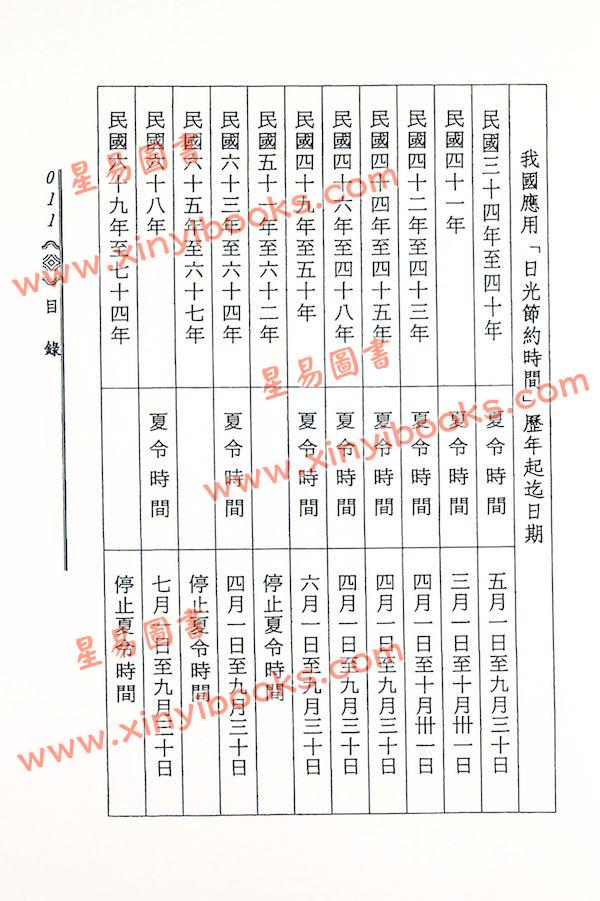 我國應用「日光節約時間」歷年起迄日期
民國三十四年至四十年 夏令時間 五月一日至九月三十日
民國四十一年 夏令時間 三月一日至十月卅一日
民國四十二年至四十三年 夏令時間 四月一日至十月卅一日
民國四十四年至四十五年 夏令時間 四月一日至九月三十日
民國四十六年至四十八年 夏令時間 四月一日至九月三十日
民國四十九年至五十年 夏令時間 六月一日至九月三十日
民國五十一年至六十二年 停止夏令時間
民國六十三年至六十四年 夏令時間 四月一日至九月三十日
民國六十五年至六十七年 停止夏令時間
民國六十八年 夏令時間 七月一日至九月三十日
民國六十九年至七十四年 停止夏令時間
011 目錄
星易圖書
www.xinyibooks.com
星易圖書
www.xinyibooks.com
星易圖書
www.xinyibooks.com